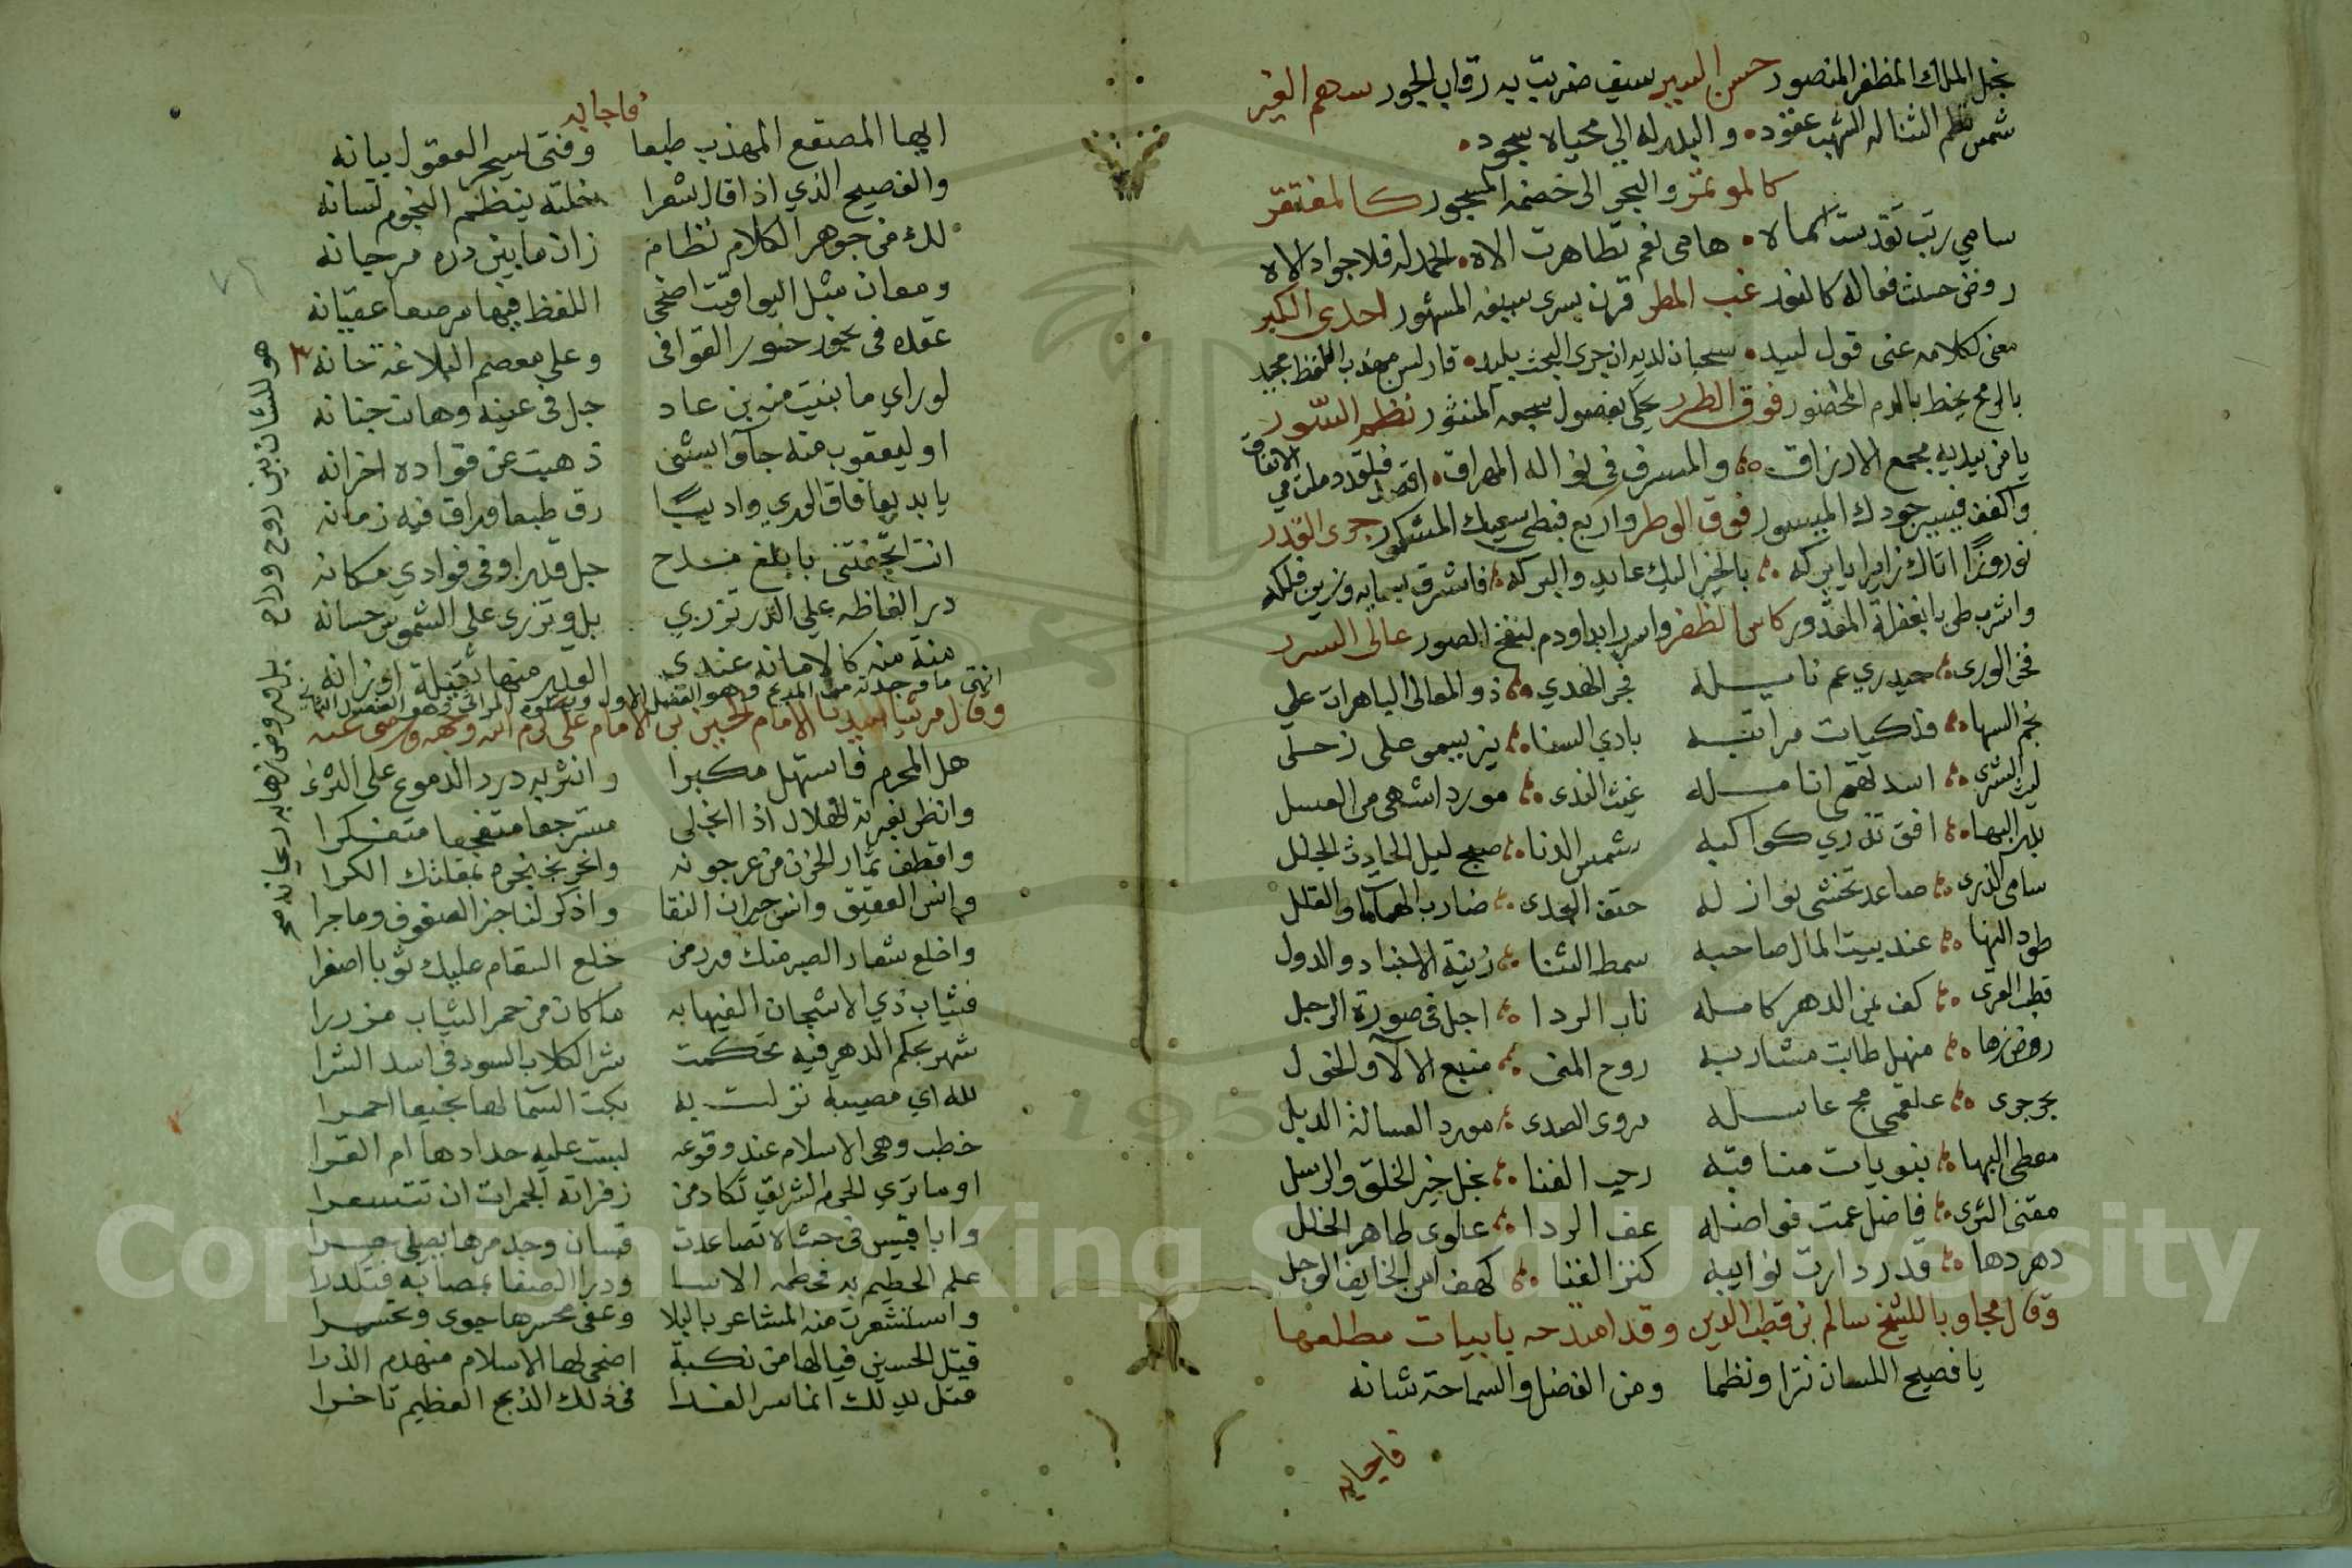 نجل الملك المظفر المنصور حسن السير سيف ضربت به رقاب الجور سهم الغير
شمس نظم الثنا له الشهب عقود والبدر له الى محياه سجود
كالموتمر والبحر الى خضمه المسجور كالمفتقر
سامي رتب تقدست اسماه هامى نعم تظاهرت الاه الحمد له فلا جواد الاه
روض حسنت فعاله كالنور غب المطر قرن يسرى سيفه المشهور احدى الكبر
معنى كلامه عنى قول لبيد سحبان لديه ان جرى البحث بليد مهذب اللفظ مجيد
بالرمح يخط بالدم فوق الطرر يحكى بفصول سجعه المنثور نظم السور
يا من بيديه مجمع الارزاق والمسرف في نواله المهراق اقصد فلقد دملت من الانفاق
واكفف جودك الميسور فوق الوطر واربع سعيك المشكور جرى القدر
نوروز اتاك زايرا يا بركه بالخير اليك عايد والبركه فاشرق
واشرب طربا بغفلة المقدور كاس الظفر واسر ابدا ودم لنفخ الصور عالى السرر
فخر الورى حيدري عم نايله فجر الهدي ذو المعالى الباهرات علي
نجم السها فلكيات مراتبه بادي السنا نير يسمو على زحل
ليث الشرى اسد لهم انامله غيث الندى مورد اشهى من العسل
بدر البها افق تدري كواكبه شمس الدنا صبح ليل الحادث الجلل
سامى الذرى صاعد تخشى نوازله حتف العدى ضارب الهامات والقلل
طود النها عند بيت المال صاحبه سمط الثنا زينة الاجياد والدول
قطب القرى كف يمن الدهر كامله ناب الردا اجل في صورة الرجل
روض زها منهل طابت مشاربه روح المنى منبع الالاء والخول
بحر جرى علقمي مج عاسله مروى الصدى مورد العسالة الذبل
معطى البها بنويات مناقبه رحب الفنا نجل خير الخلق والرسل
مقنى الثرى فاضل عمت فواضله عف الردا علوى طاهر الخلل
دهر دها قدر دارت نوايبه كنز الغنا كهف امن الخايف الوجل
وقال مجاوبا للشيخ سالم بن قطب الدين وقد امتدحه بابيات مطلعها
يا فصيح اللسان نثرا ونظما ومن الفضل والسماحة شانه
فاجابه
فاجابه
ايها المصقع المهذب طبعا وفتى يسحر العقول بيانه
والفصيح الذي اذا قال شعرا خلته ينظم النجوم لسانه
لك من جوهر الكلام نظام زان ما بين دره مرجانه
ومعان مثل اليواقيت اضحى اللفظ فيها مرصعا عقيانه
عقده في نحور حور القوافى وعلى معصم البلاغة حانه
لو راي ما بنيت منه بن عاد جل في عينه وهانت جنانه
او ليعقوب منه جاآ بشئ ذهبت عن فواده احزانه
يا بديعا فاق الورى واديبا رق طبعا وراق فيه زمانه
انت اتحفتنى بابلغ مدح جل قدرا وفى فوادي مكانه
در الفاظه على الدر تزري بل وتزرى على الشموس حسانه
منة منه كالامانه عندي منها ثقيلة اوزانه
انتهى ما وجدته من المديح وهو الفصل الاول ويتلوه المراثي وهو الفصل الثاني
وقال مرثيا لسيدنا الامام الحسين بن الامام على كرم الله وجهه ورضى عنه
هل المحرم فاستهل مكبرا وانثر به درر الدموع على الثرى
وانظر بغرته الهلال اذا انجلى مسترجعا متفجعا متفكرا
واقطف ثمار الحزن من عرجونه وانحر بخنجره بمقلتك الكرا
وانس العقيق وانس جيران النقا واذكر لنا خبر الصفوف وما جرا
واخلع شعار الصبر منك وزر من خلع السقام عليك ثوبا اصفرا
فثياب ذي الاشجان اليقها به ما كان من حمر الثياب مزررا
شهر بحكم الدهر فيه تحكمت شر الكلاب السود في اسد الشرا
لله اي مصيبة نزلت به بكت السما لها نجيعا احمرا
خطب وهى الاسلام عند وقوعه لبست عليه حدادها ام القرا
اوما ترى الحرم الشريف تكاد من زفراته الجمرات ان تتسعرا
وابا قبيس في حشاه تصاعدت قبسات وجد حرها يصلى حرا
علم الحطيم به فحطمه الاسا ودرا الصفا بمصابه فتكدرا
واستشعرت منه المشاعر بالبلا وعفى محسرها جوى وتحسرا
قتل الحسين فيا لها من نكبة اضحى لها الاسلام منهدم الذرا
قتل يدلك انما سر الفدا في ذلك الذبح العظيم تاخرا
هو للشان بين روح وراح بل هو روض زها به ريحانه صح